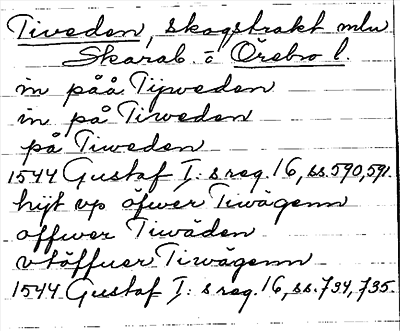 Tiveden, skogstrakt mlu
Skarab. o Örebro l.
in påå Tijweden
in på Tiweden
på Tiweden
1544 Gustaf I: s reg. 16, ss. 590, 591.
hijt vp öfwer Tiwägenn
offwer Tiwäden
vtöffuer Tiwägenn
1544 Gustaf I: s reg. 16, ss. 734, 735.